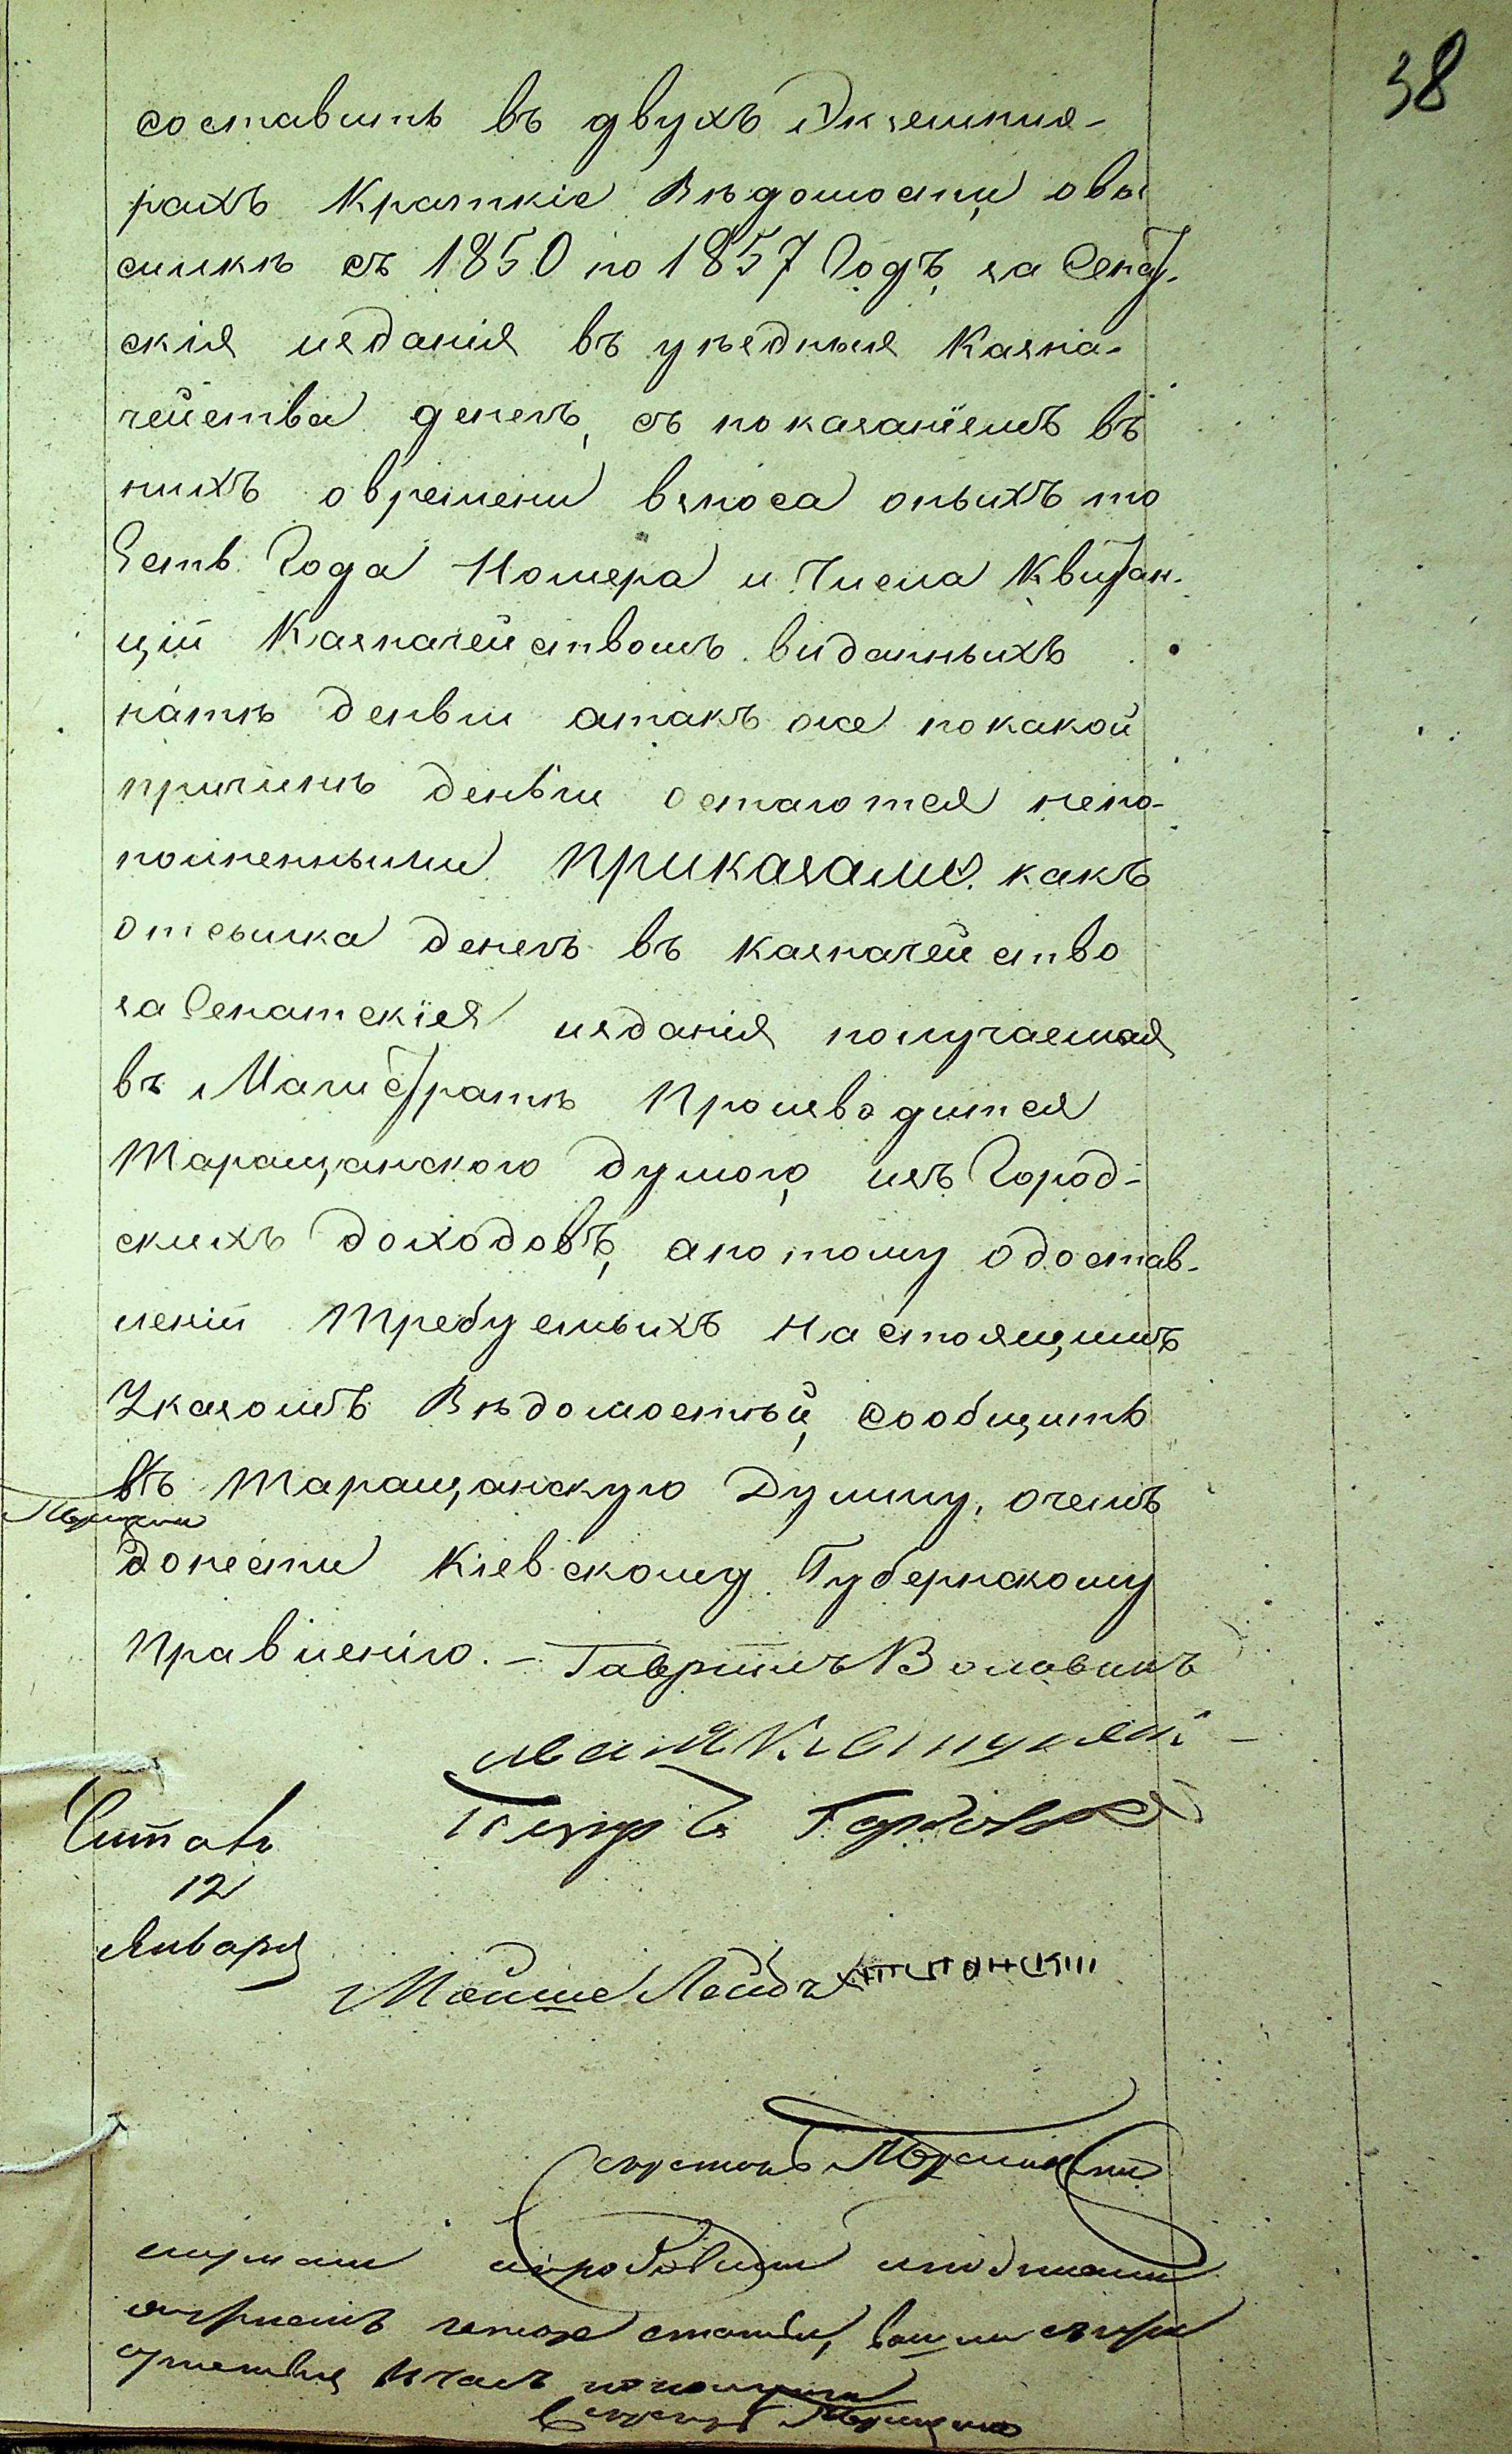 38
составить въ двухъ Экземпля-
рахъ Краткіе Вѣдомости, овы
сылкѣ съ 1850 по 1857 Годъ, за Сенат-
скія изданія въ уѣздныя Казна-
чейства денегъ, съ показаніемъ въ
нихъ овремени взноса оныхъ то
Есть Года Номера и Числа Квитан-
цій Казначействомъ виданныхъ
натѣ деньги атакъ же по какой
причинѣ деньги остаются непо-
полненными приказали какъ
отсылка денегъ въ казначейство
за Сенатскія изданія получаемая
въ Магистратѣ Производится
Таращанского думою, изъ Город-
скихъ доходовъ, апотому одостав-
леніи Требуемыхъ Настоящимъ
Указомъ Вѣдомостей, сообщить
въ Таращанскую Думу, очемъ
донести Кіевскому Губернскому
Правленію. – Гаврiилъ Воловикъ
Иванъ
Петръ
Читалъ
12
Января
Мойше Лейбъ
Секретарь